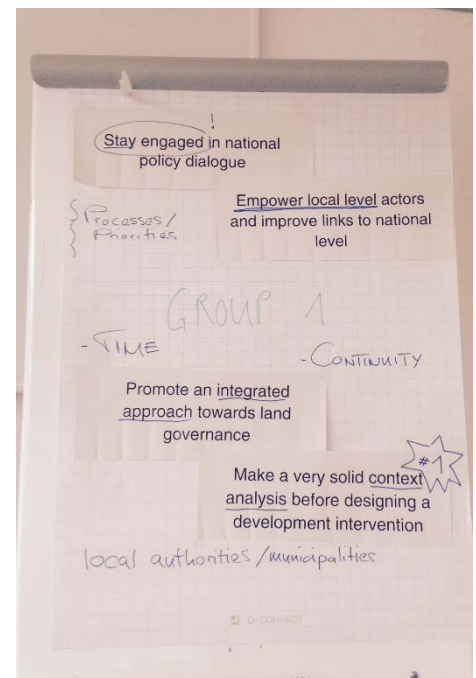 !
Stay engaged in national
policy dialogue
Empower local level actors
and improve links to national
level
Processes/
Priorities
GROUP 1
- TIME
- CONTINUITY
Promote an integrated
approach towards land
governance
#1
Make a very solid context
analysis before designing a
development intervention
local authorities/municipalities
Q-CONNECT